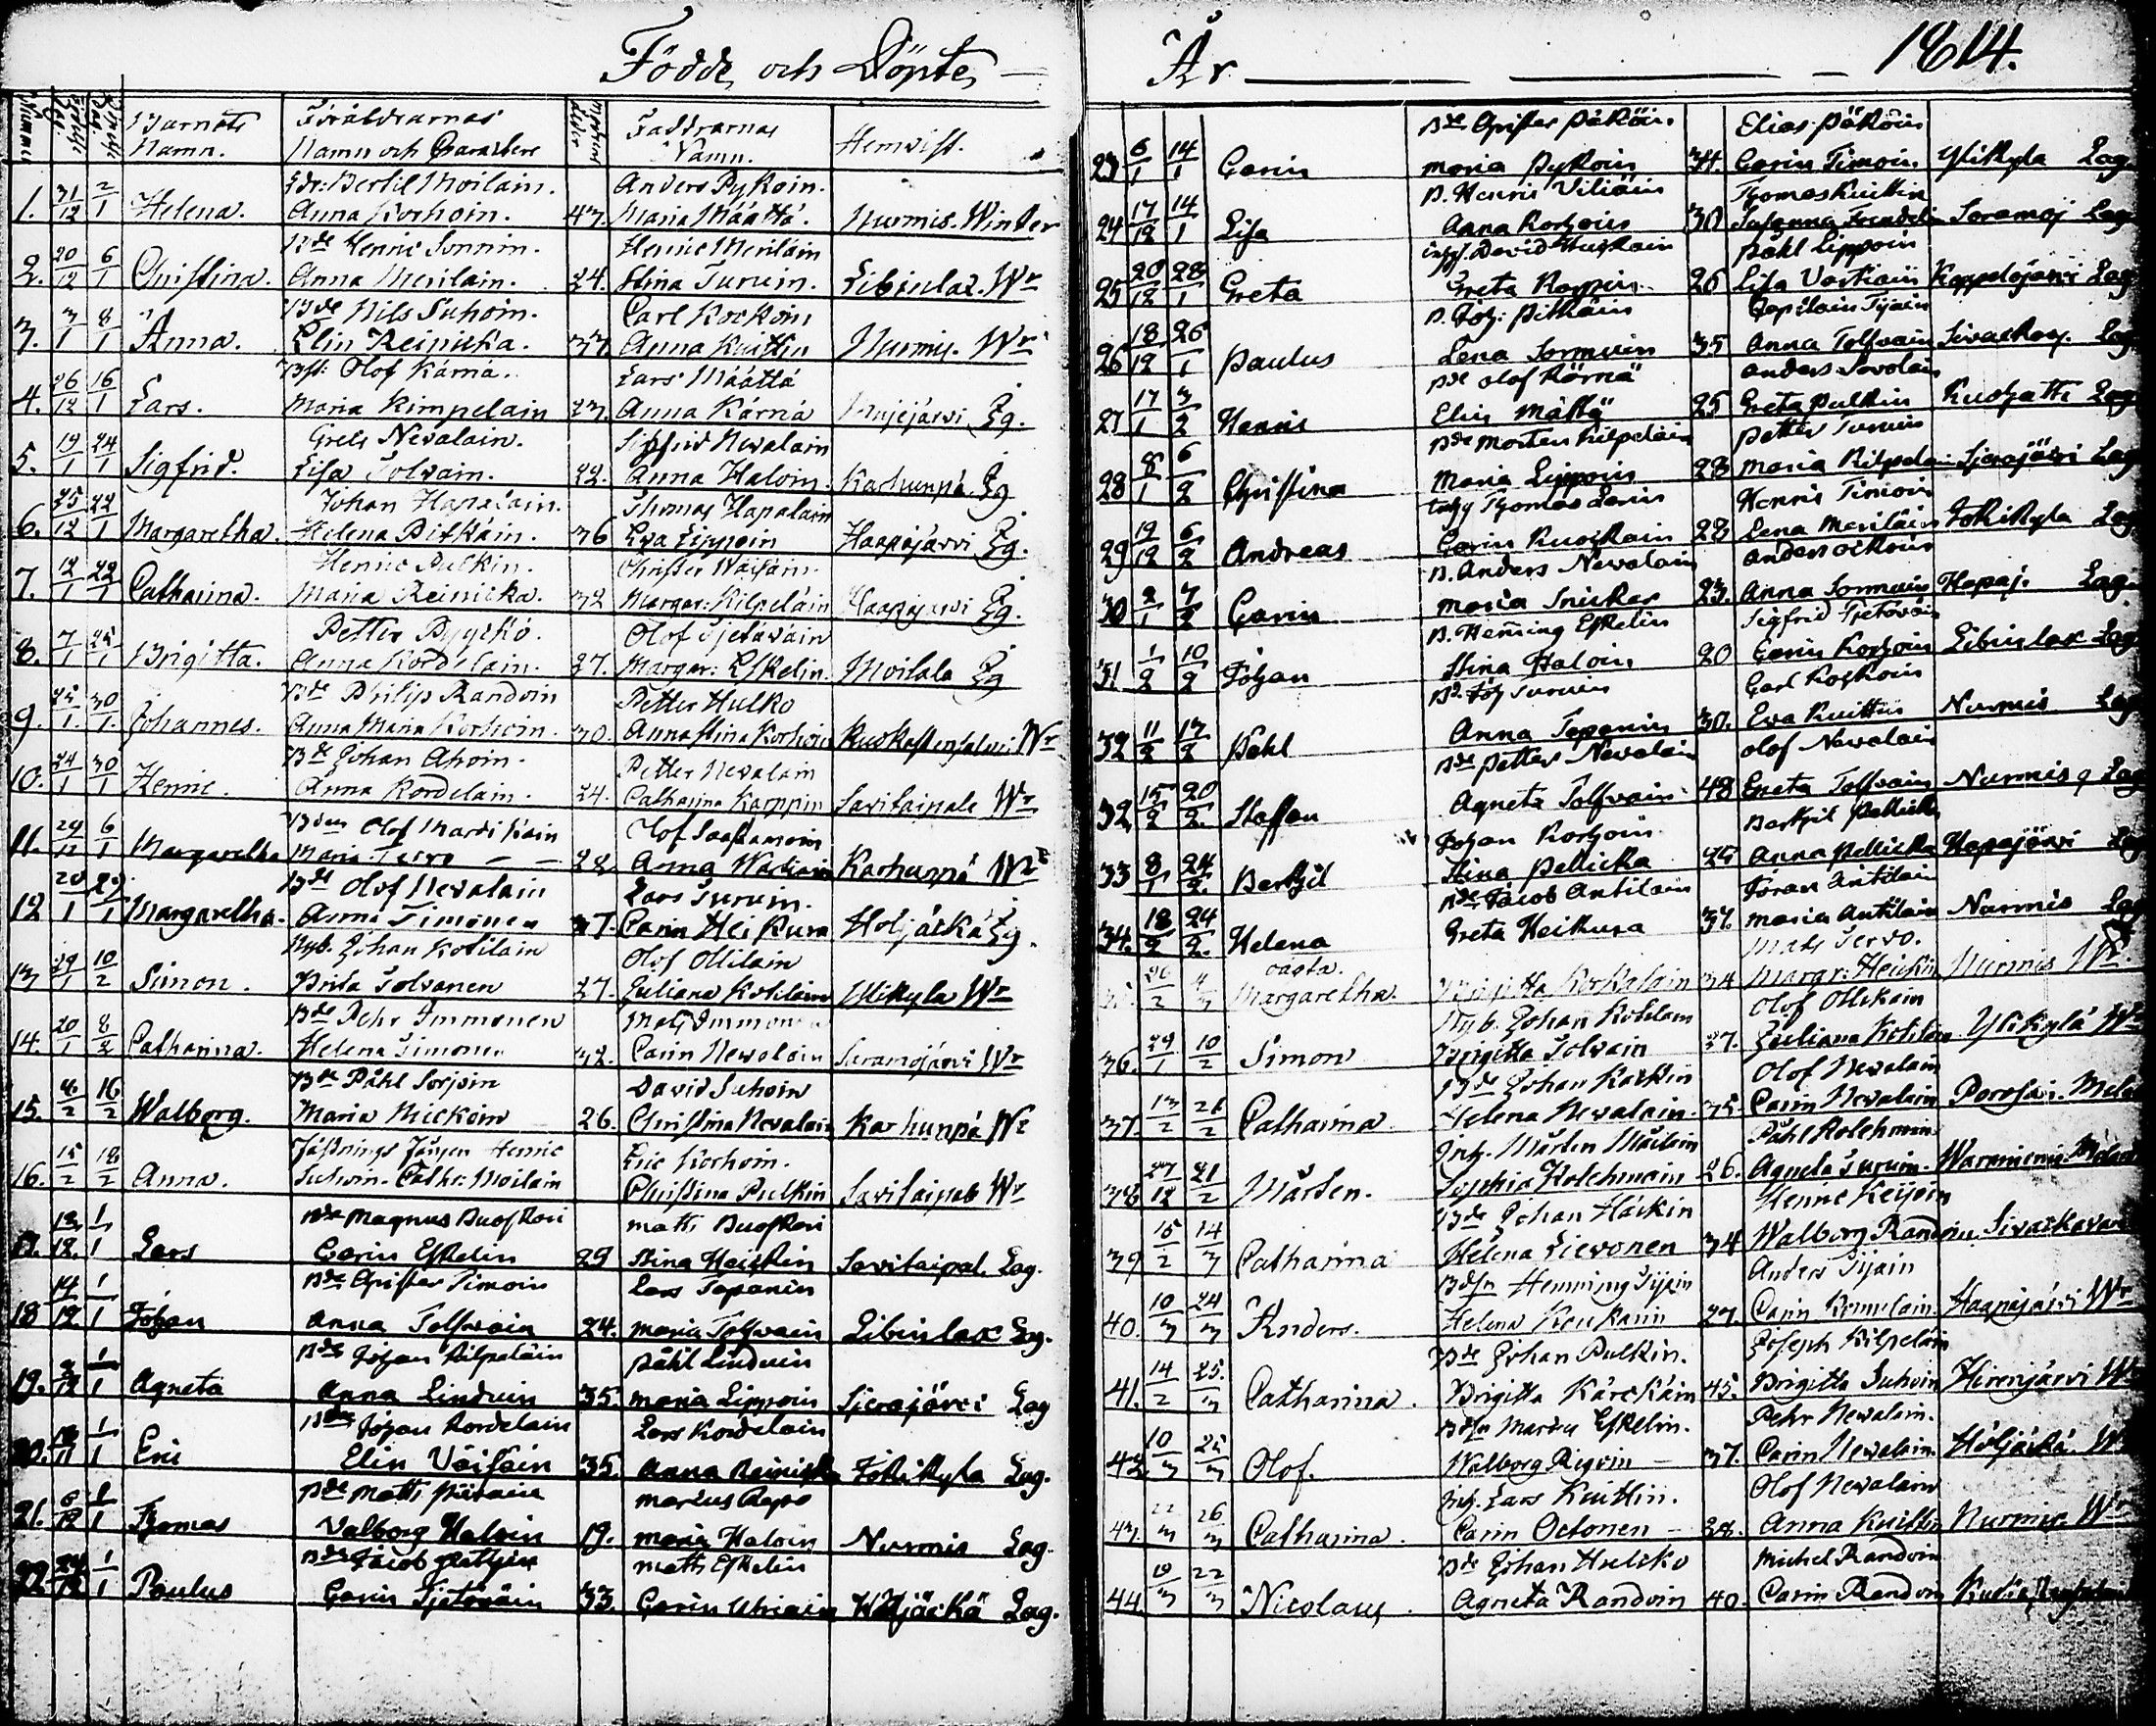 Födde och Döpte
År 1814.
Nummer Födelse Dag. Döpelse Dag. Barnets Namn. Föräldrarnas Namn och Caractere Modrens ålder Faddrarnas Namn. Hemvist.
Bertil Moilain. Anders Pykoin.
1. 31/12 2/1 Helena. Anna Korhoin. 47. Maria Määttä. Nurmis. Winter
Bde Henric Sonnin. Henric Merilain
2. 20/12 6/1 Christina. Anna Merilain. 24. Stina Turuin. Libiulax. Wr
Bde Nils Suhoin. Carl Kockoin
3. 3/1 8/1 Anna. Elin Reinicka. 37 Anna Kuittin Nurmis. Wr
Olof Kärnä. Lars Määttä
4. 26/12 16/1 Lars. Maria Kimpelain 23. Anna Kärnä Mujejärvi Lg.
Grels Nevalain. Sigfrid Nevalain
5. 19/1 24/1 Sigfrid. Lisa Tolvain. 22. Anna Haloin. Karhunpä Lg
Johan Hapalain. Thomas Hapalain
6. 25/12 22/1 Margaretha. Helena Pitkäin. 36 Eva Lippoin Haapajärvi Lg.
Henric Pulkin. Christer Wäisäin.
7. 12/1 22/1 Catharina. Maria Reinicka. 32 Margar: Kilpeläin Haapajärvi Lg.
Petter Pyyckö. Olof Tjetäväin
8. 7/1 25/1 Brigitta. Anna Kordelain. 27. Margar: Eskelin. Moilala Lg
Bde Philip Randoin Petter Hulko
9. 25/1 30/1 Johannes. Anna Maria Korhoin. 30. Anna Stina Korhoin Wr
Bde Johan Ahoin. Petter Nevalain
10. 24/1 30/1 Henric. Anna Kordelain. 24. Catharina Karppin Savitaipale Wr
Olof Mardikain Olof Saastamoin
11. 29/12 6/1 Margaretha Maria Tervo 28. Anna Karhunpä Wr
Bde Olof Nevalain Lars Turuin.
12 20/1 29/1 Margaretha. Anna Timonen 37. Carin Heikura Höljäckä Lg.
Nyb. Johan Kotilain Olof Ollilain
13 29/1 10/2 Simon. Brita Tolvanen 27. Juliana Kotilain Ylikyla Wr
Bde Pehr Immonen Mats Immonen
14. 20/1 8/2 Catharina. Helena Timonen 32. Carin Nevalain Saramojärvi Wr
Bde Påhl Sorjoin David Suhoin
15. 6/2 16/2 Walborg. Maria Mickoin 26. Christina Nevalain Karhunpä Wr
Henric Eric Korhoin.
16. 15/2 18/2 Anna. Suhoin. Cathr: Moilain Christina Pulkin Savitaipale Wr
Bde Magnus Ruoskari matts Ruoskari
17. 13/12. 1/1 Lars Carin Eskelin 29 Stina Heiskin Savitaipal. Lag.
Bde Crister Timoin Lars Tapanin
18 14/12 1/1 Johan Anna Tolfwain 24. maria Tolfwain Libiulax Lag.
Bde Johan Kilpeläin påhl Linduin
19. 2/12 1/1 Agneta Anna Linduin 35. maria Lippoin Sjerajärvi Lag
Bde Johan Kordelain Lars Kordelain
20. 13/11 1/1 Eric Elin Väisäin 35. Anna Reinicka Jokikyla Lag.
Bde matts marcus Repo
21. 6/12 1/1 Thomas Valborg Haloin 19. maria Haloin Nurmis Lag.
Bde Jacob matts Eskelin
22 24/12 1/1 Paulus Carin Tjetäväin 33. Carin Höljäckä Lag.
Bde Crister päköin. Elias päköin
23 6/1 14/1 Carin maria pykoin 34. Carin Timoin. Ylikyla Lag.
B. Henric Viliäin Thomas Kuittin
24 17/12 14/1 Lisa Anna Korhoin 30 Susanna Saramoj Lag
inhys. David Huskain påhl Lippoin
25 20/12 28/1 Greta Greta Karppin 26 Lisa Vartiain Koppelojärvi Lag
B. Joh: pitkäin Tijain
26 18/12 26/1 paulus Lena Sormuin 35 Anna Tolfvain Sivackav. Lag
Bde olof Körnä anders Sovolain
27 17/1 3/2 Henric Elin mättä 25 Greta pulkin Kuohatti Lag
Bde morten Kilpeläin petter Turuin
28 8/1 6/2 Christina Maria Lippoin 28 maria Kilpela: Sjerajärvi Lag
Thomas Lenin Henric Timoin
29 19/12 6/2 Andreas Carin Ruoskain 28 Lena Meriläin Jokikyla Lag
B. Anders Nevalain anders ockoin
30 2/1 7/2 Carin maria Snicker 23. Anna Sormuin Hapaj. Lag
B. Henning Eskelin Sigfrid Tjetöväin
31 1/2 10/2 Johan Stina Haloin 20 Carin Korhoin Libiulax Lag
B. Joh Turuin Carl Kockoin
32 11/2 17/2 Påhl Anna Tapanin 30. Eva Kuittin Nurmis Lag
Bde petter Nevalain olof Nevalain
32 15/2 20/2 Staffan Agneta Tolfvain 48 Greta Tolfvain Nurmis Lag
Johan Korhoin Berthil pellicka
33 8/1 24/2 Berthil Stina pellicka 25 Anna pellicka Hapajärvi Lag
Bde Jacob Antilain Jöran Antilain
34. 18/2 24/2 Helena Greta Heikura 37. maria Antilain Nurmis Lag
oägta. Mats Tervo.
26/2 4/3 Margaretha. Brigitta Korkalain 34 Margr: Heickin Nurmis Wr
Nyb. Johan Kotilain Olof Ollikain
36. 29/1 10/2 Simon Brigitta Tolvain 27. Juliana Kotilain Ylikylä Wr
Bde Johan Olof Nevalain
37. 13/2 26/2 Catharina Helena Nevalain. 35 Carin Nevalain
Inh. Mårten Påhl Kolehmain
38 27/12 21/2 Mårten. Sophia Kolehmain 26. Agneta Turuin.
Bde Johan Häikin Henric Keijoin
39 15/2 14/3 Catharina Helena Lievonen 34 Walborg Randoin Sivackavaara
Henning Tijain Anders Tijain
40. 10/3 24/3 Anders. Helena 27. Carin Haapajärvi Wr
Bde Johan Pulkin. Joseph Kilpeläin
41. 14/2 25/3 Catharina. Brigitta Kärckäin 45. Brigitta Suhoin Hirvijärvi Wr
Eskelin. Pehr Nevalain.
42 10/3 25/3 Olof. Walborg 37. Carin Nevalain Höljäckä. Wr
Inh. Lars Kuittin. Olof Nevalain
43. 22/3 26/3 Catharina. Carin Octonen 28. Anna Kuittin Nurmis. Wr
Bde Johan Hulcko Michel Randoin
44. 19/3 22/3 Nicolaus. Agneta Randoin 40. Carin Randoin